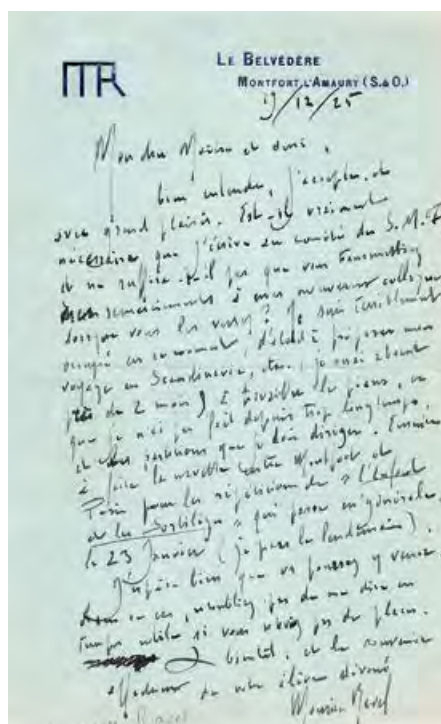 MR
LE BELVÉDÈRE
MONTFORT L'AMAURY (S. & O.)
19/12/25
Mon cher Maître et ami,
bien entendu, j'accepte, et
avec grand plaisir. Est-il vraiment
nécessaire que j'écrive au comité du S.M.F
et ne suffira-t-il pas que vous transmettiez
mes remerciements à mes nouveaux collègues
lorsque vous les verrez? Je suis terriblement
occupé en ce moment, d'abord à préparer mon
voyage en Scandinavie, etc., je serai absent
près de 2 mois) à travailler le piano, ce
que je n'ai pas fait depuis trop longtemps,
et les que je dois diriger. Ensuite
à faire la navette entre Montfort et
Paris pour les répétitions de "l'Enfant
et les Sortilèges" qui passe en générale
le 23 Janvier (je pars le lendemain).
J'espère bien que vous pourrez y venir.
Dans ce cas, n'oubliez pas de me dire en
temps utile si vous n'avez pas de places.
A bientôt, et le souvenir
affectueux de votre élève dévoué
Maurice Ravel